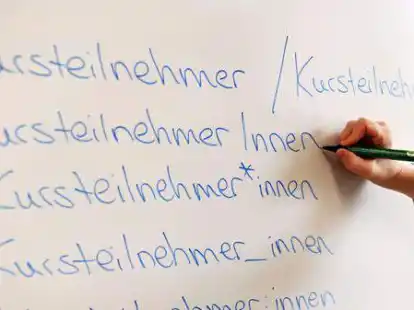 ursteilnehmer / Kursteilnehm
ursteilnehmerInnen
Kursteilnehmer*innen
Kursteilnehmer_innen
nehmer:innen